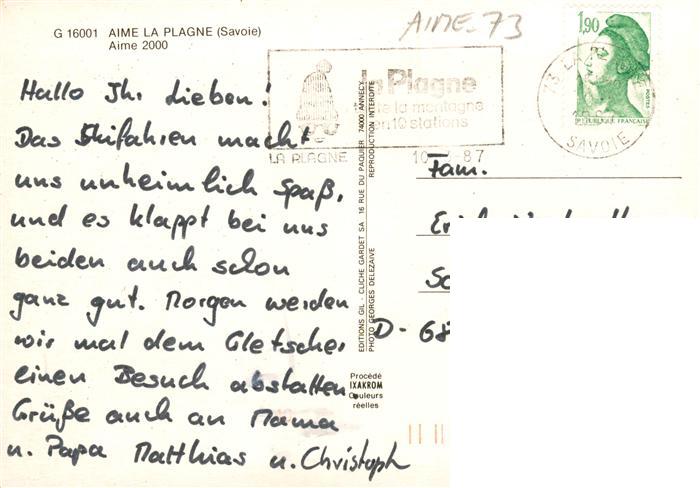 G 16001 AIME LA PLAGNE (Savoie)
Aime 2000
AIME-73
La Plagne
toute la montagne
en 10 stations
LA PLAGNE 10 87
1,90
REPUBLIQUE FRANÇAISE
POSTES
73 LA
SAVOIE
Hallo Ihr Lieben!
Das Skifahren macht
uns unheimlich Spaß,
und es klappt bei uns
beiden auch schon
ganz gut. Morgen werden
wir mal dem Gletscher
einen Besuch abstatten.
Grüße auch an Mama
u. Papa Matthias u. Christoph
EDITIONS GIL - CLICHE GARDET SA 16 RUE DU PAQUIER 74000 ANNECY
PHOTO GEORGES DELEZAIVE REPRODUCTION INTERDITE
Procédé
IXAKROM
Couleurs
réelles
Fam.
D-68